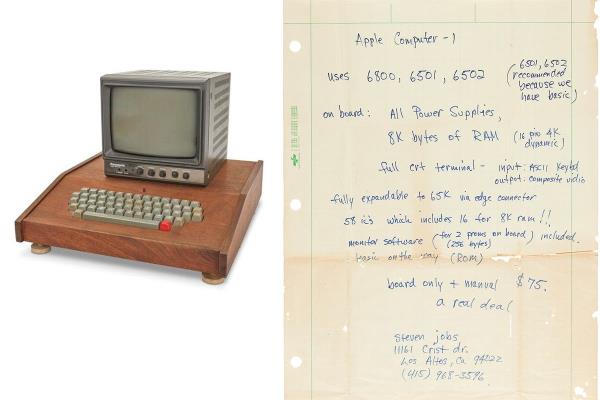 Panasonic
Apple Computer - 1
uses 6800, 6501, 6502 (6501, 6502
recommended
because we
have basic)
on board: All Power Supplies,
8K bytes of RAM (16 pin 4K
dynamic)
full crt terminal - input: ASCII Keybd
output: composite vidio
fully expandable to 65K via edge connector
58 ic's which includes 16 for 8K ram!!
monitor software (for 2 proms on board) included.
(256 bytes)
basic on the way (ROM)
board only + manual $75.
a real deal
steven jobs
11161 Crist dr.
Los Altos, Ca 94022
(415) 968-3596